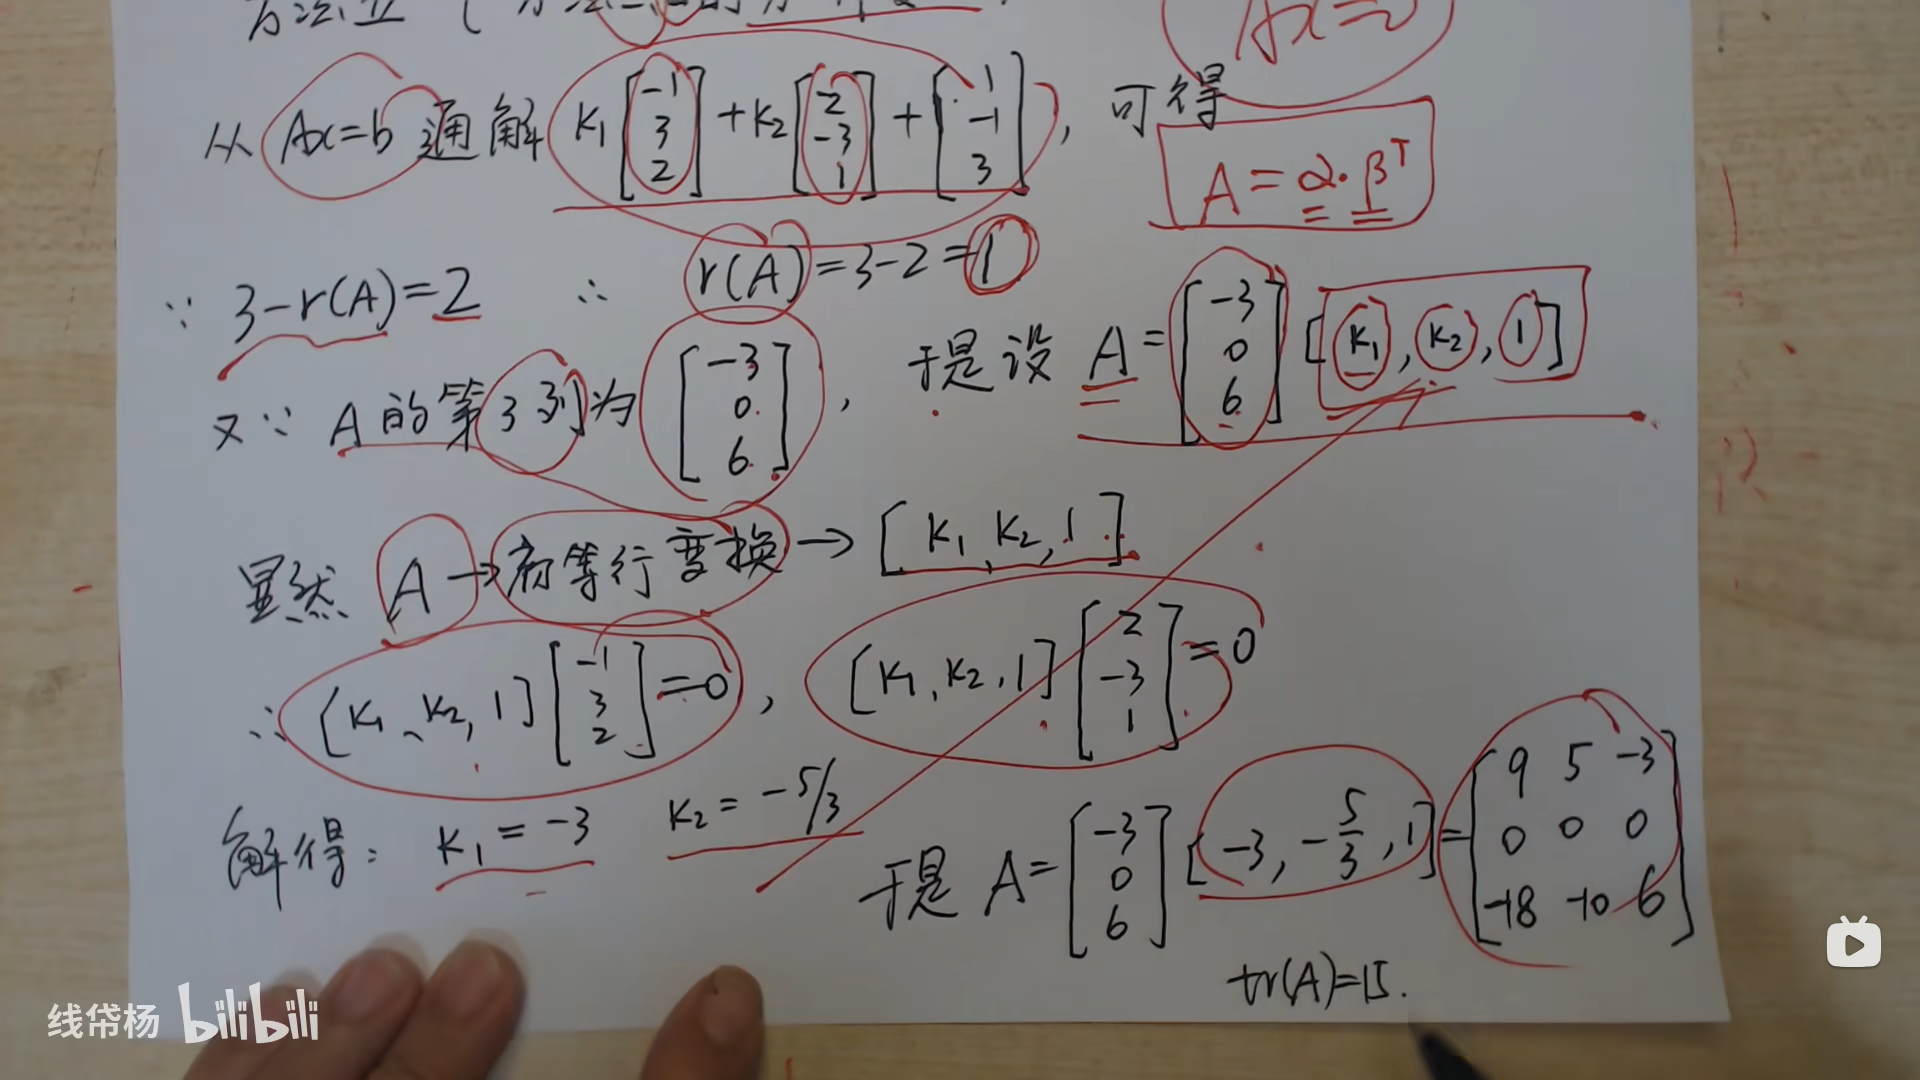 Ax=0
从 Ax=b 通解 k₁[-1 3 2] + k₂[2 -3 1] + [1 -1 3], 可得
A = α·βᵀ
∵ 3-r(A)=2 ∴ r(A)=3-2=1
又∵ A的第3列为 [-3 0 6], 于是设 A=[-3 0 6][k₁, k₂, 1]
显然 A→初等行变换→[k₁, k₂, 1]
∴ [k₁、k₂, 1][-1 3 2]=0, [k₁, k₂, 1][2 -3 1]=0
解得: k₁=-3 k₂=-5/3
于是 A=[-3 0 6][-3, -5/3, 1]=[9 5 -3 0 0 0 -18 -10 6]
tr(A)=15.
线帒杨 bilibili